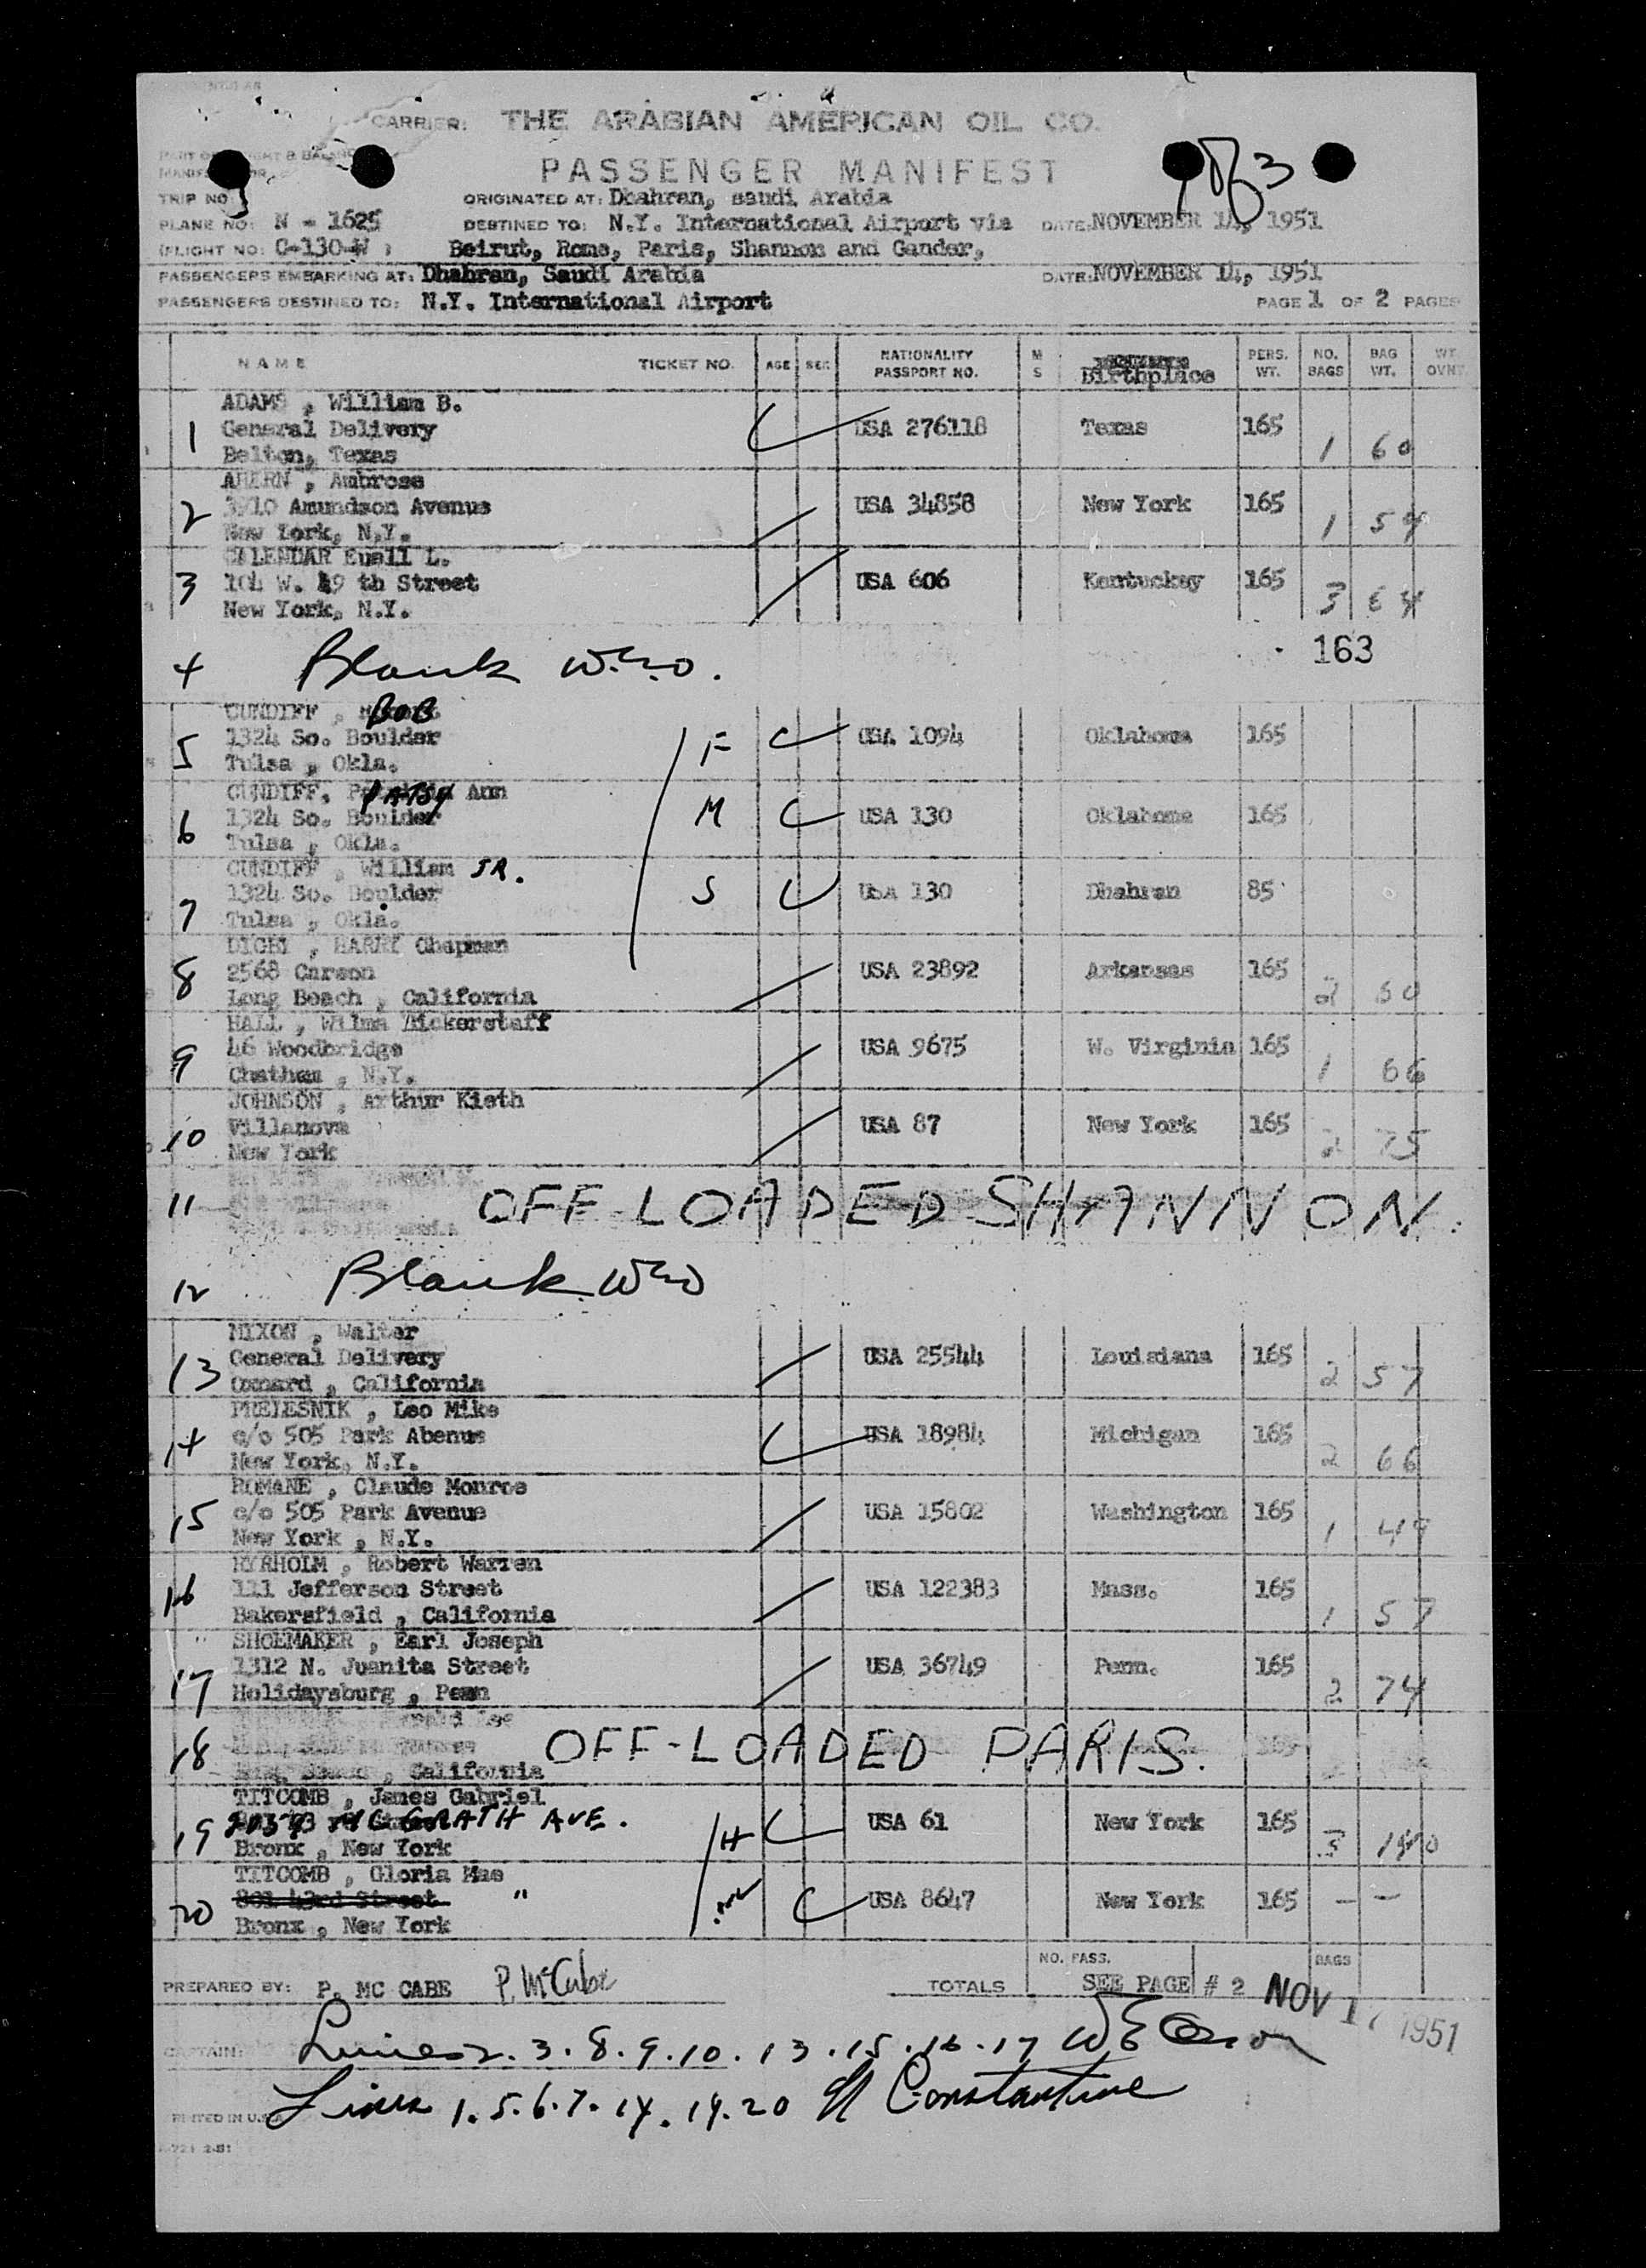 CARRIER: THE ARABIAN AMERICAN OIL CO.
PASSENGER MANIFEST
TRIP NO
ORIGINATED AT: Dhahran, saudi Arabia
PLANE NO: N - 1625 DESTINED TO: N.Y. International Airport via DATE: NOVEMBER 14, 1951
(FLIGHT NO: C-130-W ) Beirut, Rome, Paris, Shannon and Gander,
PASSENGERS EMBARKING AT: Dhahran, Saudi Arabia DATE: NOVEMBER 14, 1951
PASSENGERS DESTINED TO: N.Y. International Airport PAGE 1 OF 2 PAGES
NAME TICKET NO. AGE SEX NATIONALITY PASSPORT NO. M S Birthplace PERS. WT. NO. BAGS BAG WT. WT. OVNT
ADAMS , William B.
1 General Delivery USA 276118 Texas 165 1 60
Belton, Texas
AHERN , Ambrose
2 Amundson Avenue USA 34858 New York 165 1 54
New York, N.Y.
CALENDAR Euell L.
3 104 W. 49 th Street USA 606 Kentucky 165 3 64
New York, N.Y.
163
4 Blank
CUNDIFF , BOB
5 1324 So. Boulder F USA 1094 Oklahoma 165
Tulsa , Okla.
CUNDIFF, PATSY Ann
6 1324 So. Boulder M USA 130 Oklahoma 165
Tulsa , Okla.
CUNDIFF , William JR.
7 1324 So. Boulder S USA 130 Dhahran 85
Tulsa , Okla.
HARRY Chapman
8 2568 Carson USA 23892 Arkansas 165 2
Long Beach , California
HALL , Wilma Bickerstaff
9 46 Woodbridge USA 9675 W. Virginia 165 1 66
Chatham , N.Y.
JOHNSON , Arthur Kieth
10 Villanova USA 87 New York 165 2 75
New York
11 OFF-LOADED SHANNON.
12 Blank
NIXON , Walter
13 General Delivery USA 25544 Louisiana 165 2 57
Oxnard , California
PRELESNIK , Leo Mike
14 c/o 505 Park Abenue USA 18984 Michigan 165 2 66
New York, N.Y.
ROMANE , Claude Monroe
15 c/o 505 Park Avenue USA 15802 Washington 165 1 49
New York , N.Y.
RYRHOLM , Robert Warren
16 111 Jefferson Street USA 122383 Mass. 165 1 57
Bakersfield , California
SHOEMAKER , Earl Joseph
17 1312 N. Juanita Street USA 36749 Penn. 165 2 74
Holidaysburg , Penn
18 OFF-LOADED PARIS.
California
TITCOMB , James Gabriel
19 MC GRATH AVE. H USA 61 New York 165 3 140
Bronx , New York
TITCOMB , Gloria Mae
20 801 43rd Street " USA 8647 New York 165 — —
Bronx , New York
NO. PASS. BAGS
PREPARED BY: P. MC CABE P. McCabe TOTALS SEE PAGE # 2
NOV 17 1951
CAPTAIN: Lines 2. 3. 8. 9. 10. 13. 15. 16. 17
Lines 1. 5. 6. 7. 14. 19. 20 Constantine
PRINTED IN U.S.